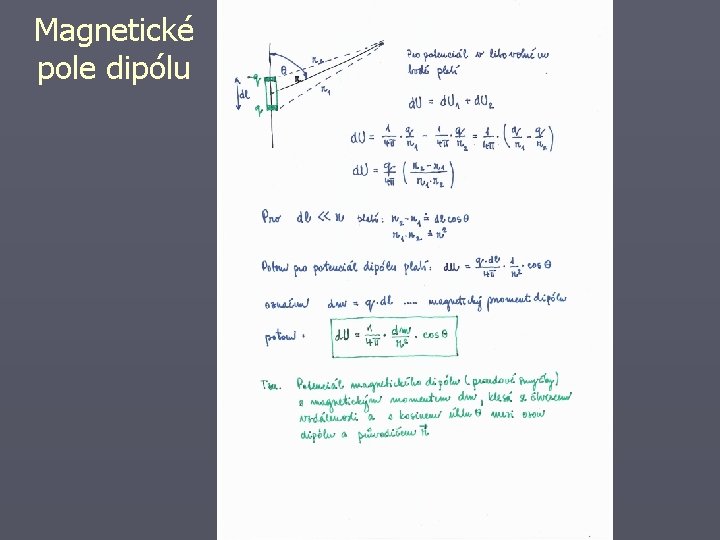 Magnetické
pole dipólu
Pro potenciál v libovolném
bodě platí
dU = dU₁ + dU₂
θ
r₂
r
r₁
q
dl
q
dU = 1/4π · q/r₁ − 1/4π · q/r₂ = 1/4π · (q/r₁ − q/r₂)
dU = q/4π (r₂ − r₁ / r₁·r₂)
Pro dl ≪ r platí: r₂ − r₁ ≐ dl cos θ
r₁·r₂ ≐ r²
Potom pro potenciál dipólu platí: dU = q·dl/4π · 1/r² · cos θ
označím dm = q·dl .... magnetický moment dipólu
potom: dU = 1/4π · dm/r² · cos θ
Tzn. Potenciál magnetického dipólu (proudové smyčky)
s magnetickým momentem dm, klesá se čtvercem
vzdálenosti a s kosinem úhlu θ mezi osou
dipólu a průvodičem r⃗.